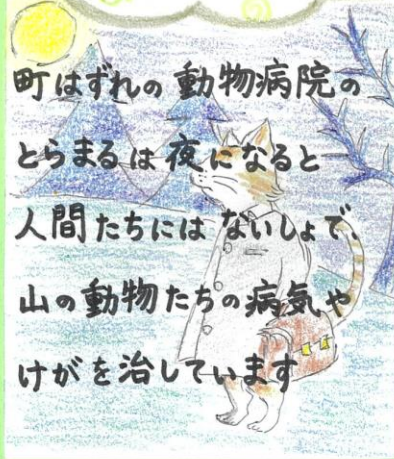 町はずれの動物病院の
とらまるは夜になると
人間たちにはないしょで、
山の動物たちの病気や
けがを治しています